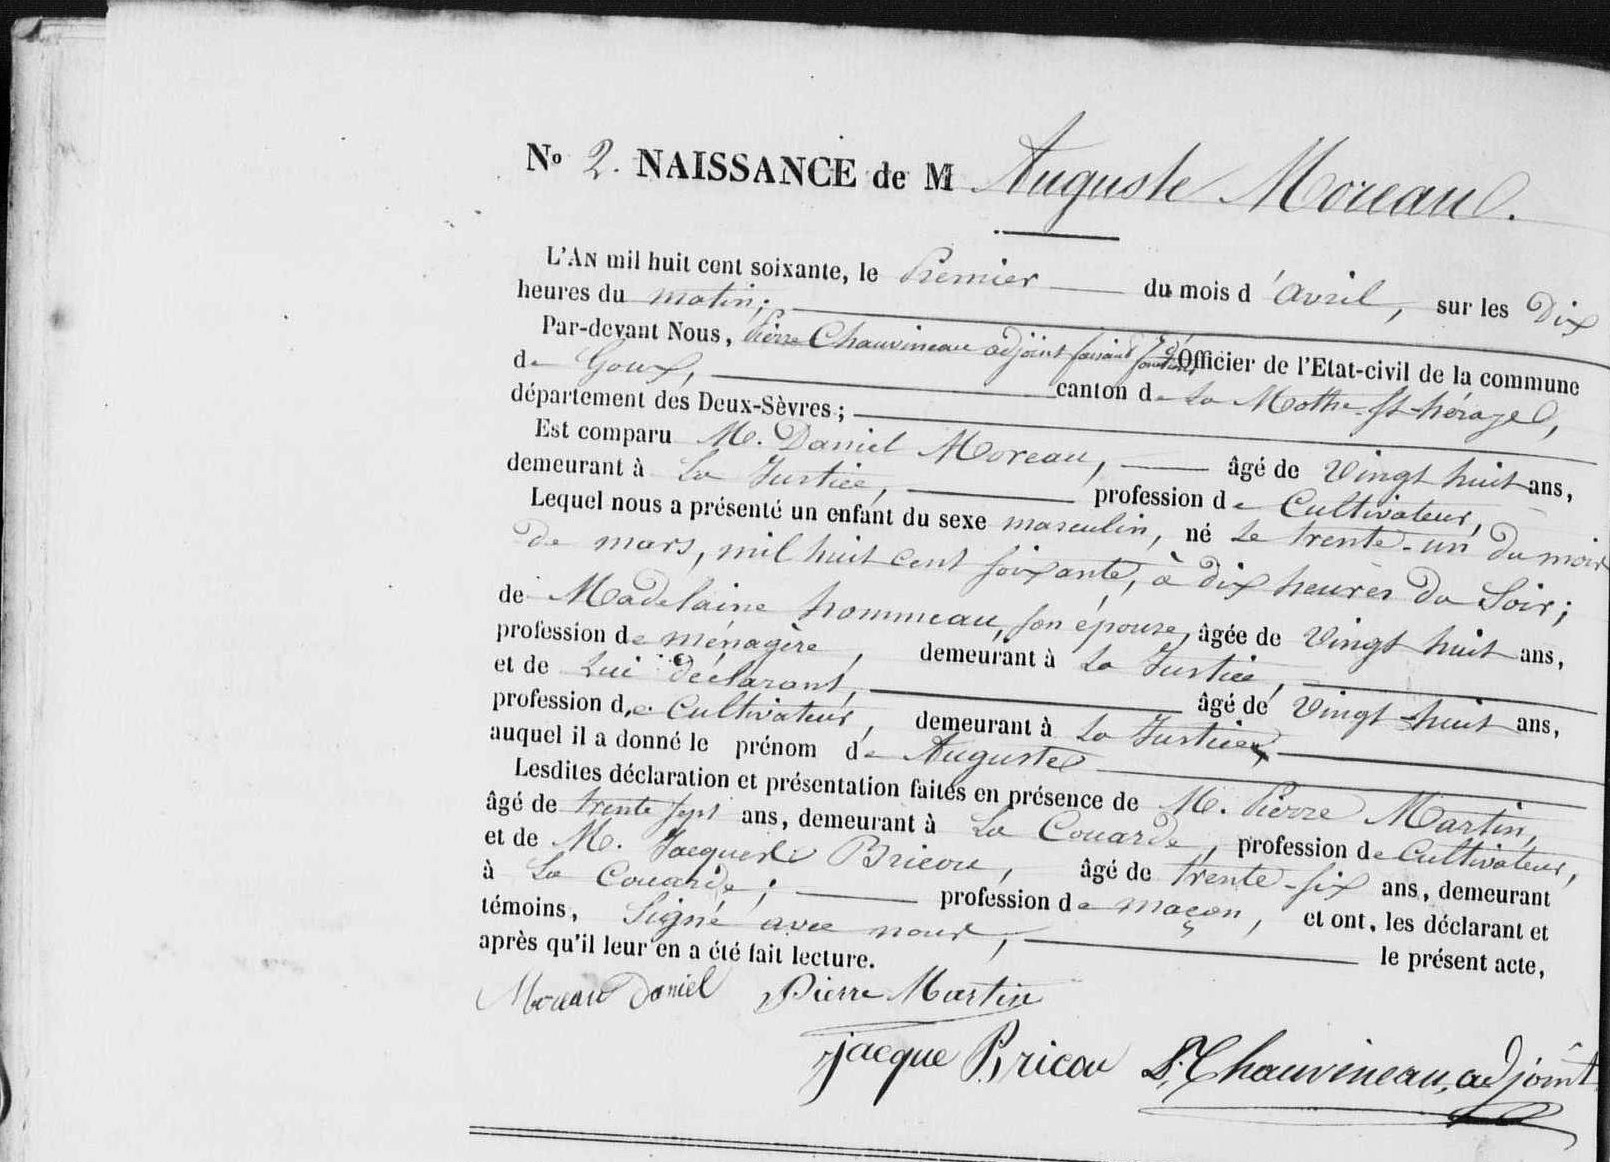 No 2. NAISSANCE de M Auguste Moreau.
L'AN mil huit cent soixante, le Premier du mois d'avril, sur les Dix
heures du matin;
Par-devant Nous, Pierre Chauvineau adjoint faisant fonctions d'Officier de l'Etat-civil de la commune
de Goux, canton de La Mothe-St-héraye,
département des Deux-Sèvres;
Est comparu M. Daniel Moreau, âgé de Vingt huit ans,
demeurant à La Justice, profession de Cultivateur,
Lequel nous a présenté un enfant du sexe masculin, né Le trente-un du mois
De mars, mil huit cent soixante, à dix heures Du Soir;
de Madelaine hommeau, son épouse, âgée de Vingt huit ans,
profession de ménagère, demeurant à La Justice,
et de Lui déclarant, âgé de Vingt-huit ans,
profession de Cultivateur, demeurant à La Justice
auquel il a donné le prénom de Auguste
Lesdites déclaration et présentation faites en présence de M. Pierre Martin,
âgé de trente sept ans, demeurant à La Couarde, profession de Cultivateur,
et de M. Jacques Bricou, âgé de trente-six ans, demeurant
à La Couarde; profession de maçon, et ont, les déclarant et
témoins, Signé avec nous, le présent acte,
après qu'il leur en a été fait lecture.
Moreau Daniel Pierre Martin
jacque Bricou P. Chauvineau, adjoint